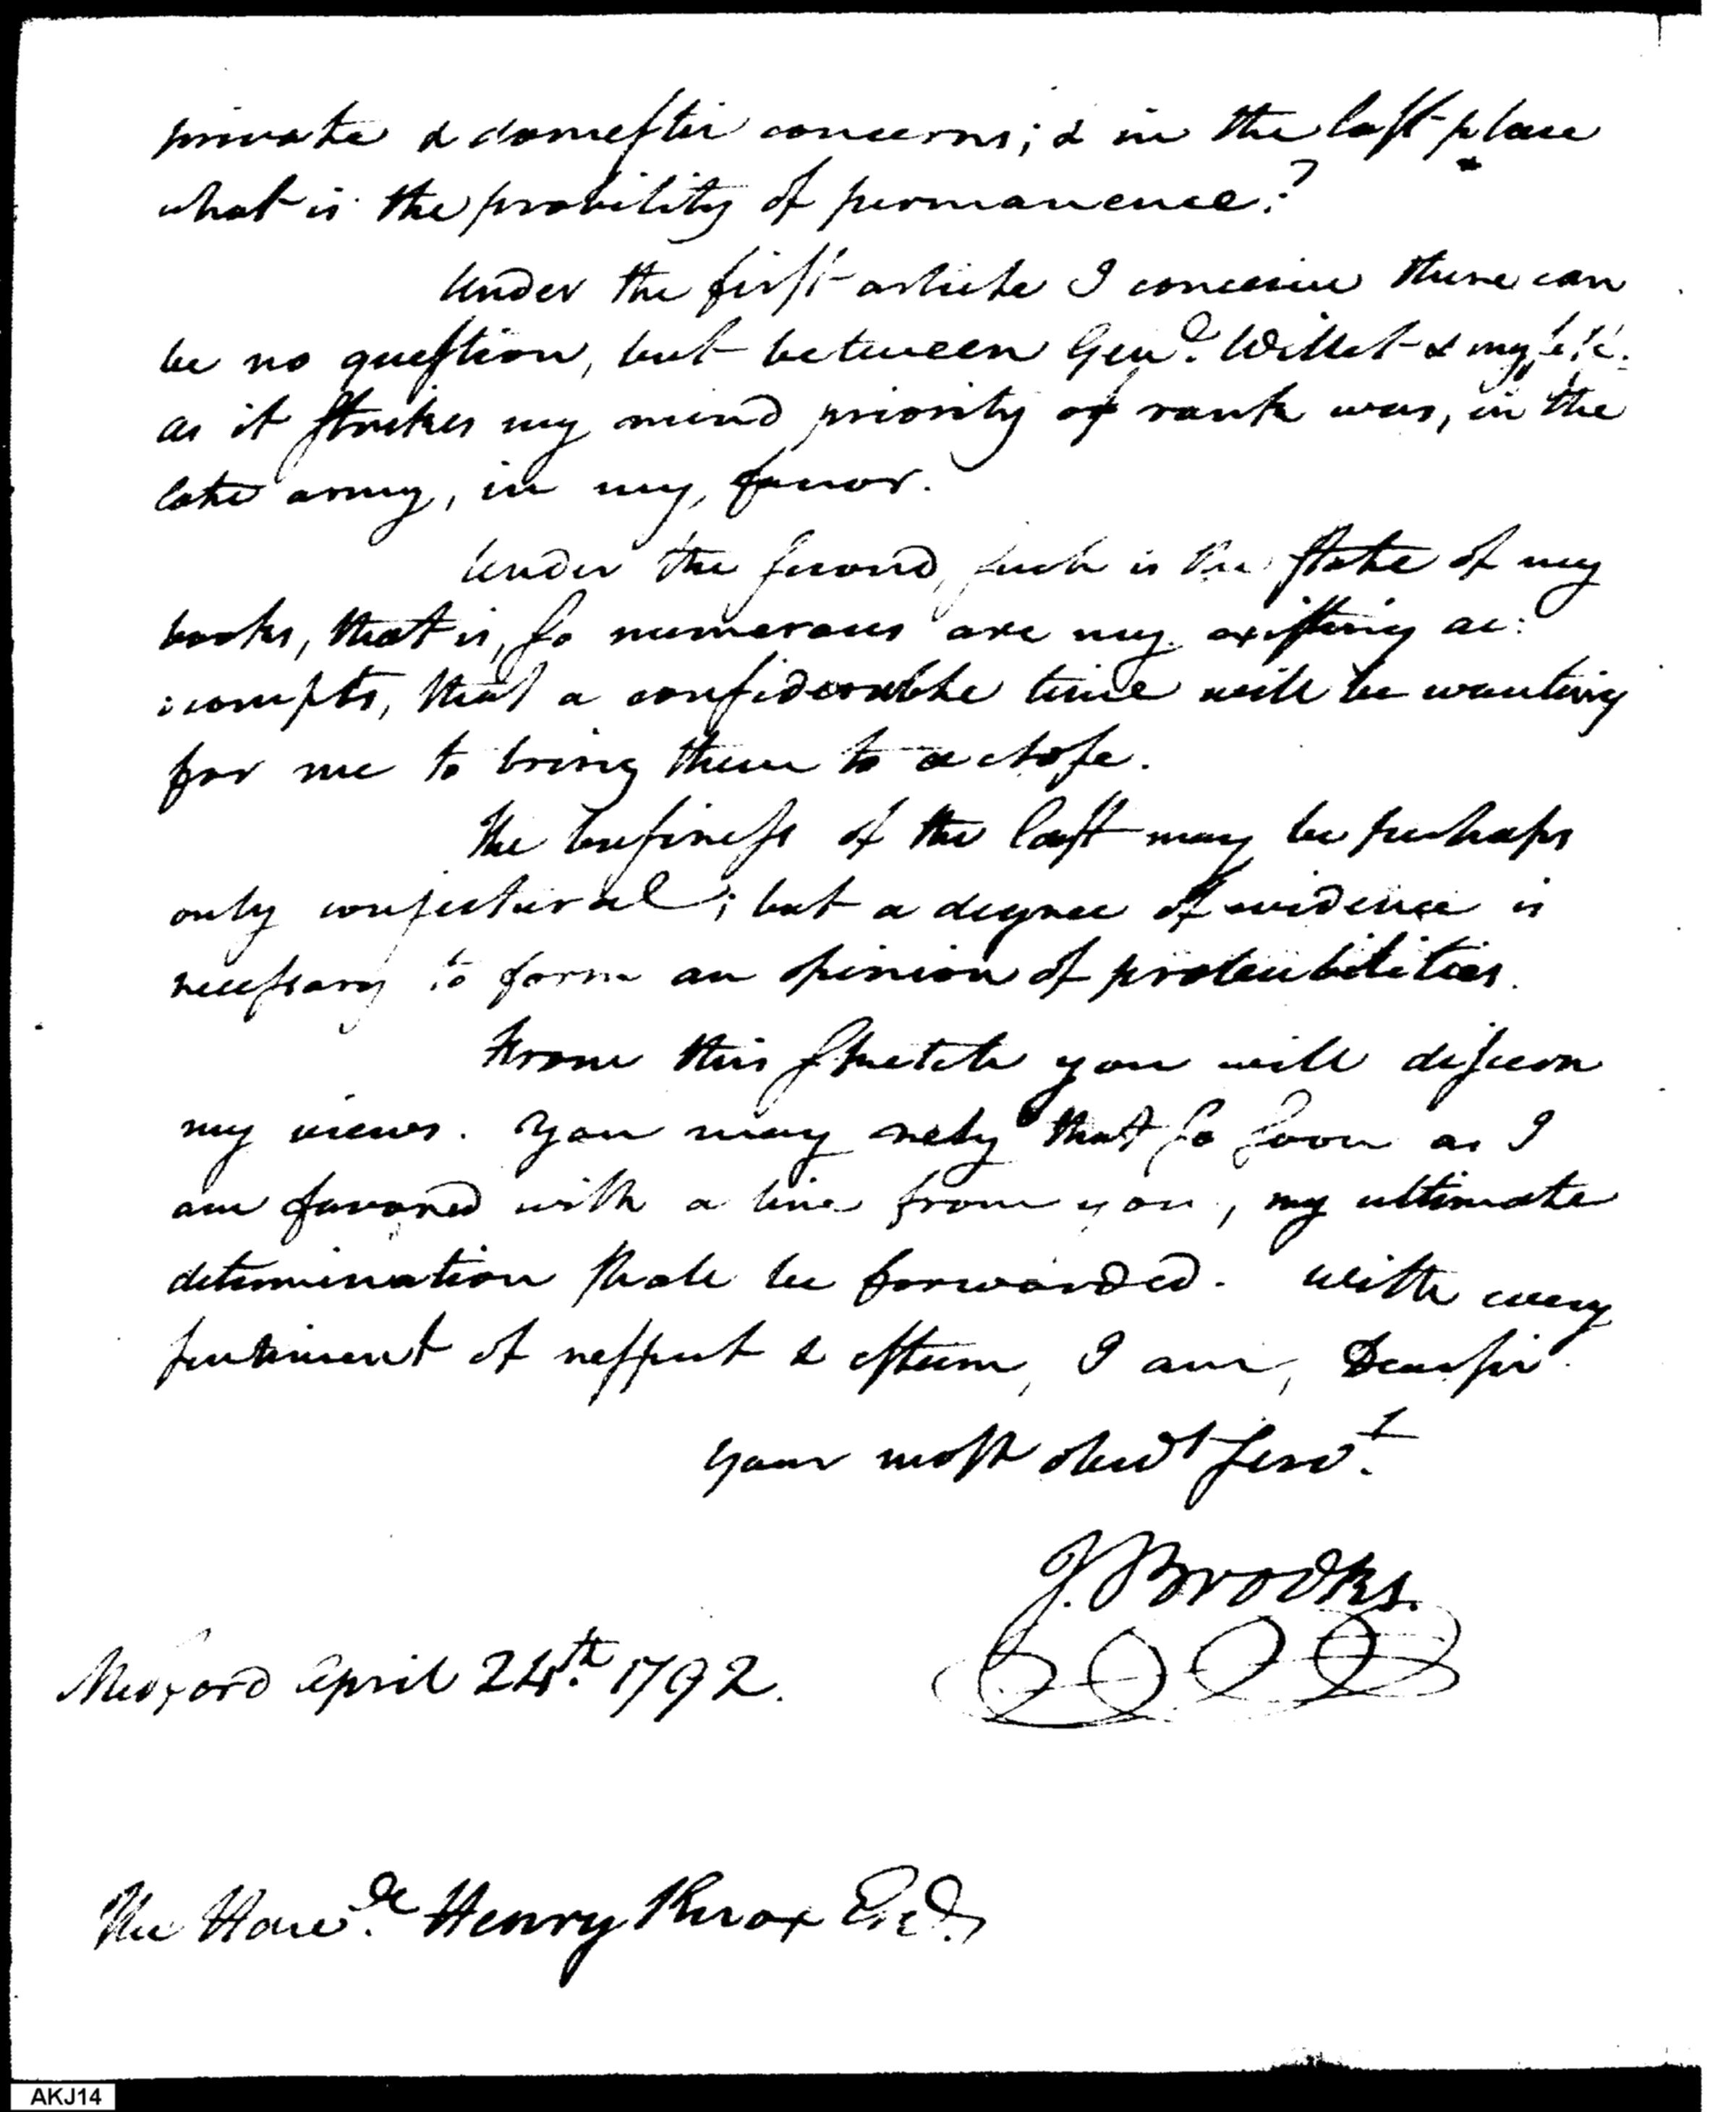 private & domestic concerns; & in the last place
what is the probility of permanence?
Under the first article I conceive there can
be no question, but between Genl. Willet & myself.
as it strikes my mind priority of rank was, in the
late army, in my favor.
Under the second, such is the state of my
books, that is, so numerous are my existing ac:
:compts, that a considerable time will be wanting
for me to bring them to a close.
The business of the last may be perhaps
only conjectural; but a degree of evidence is
necessary to form an opinion of probabilities.
From this sketch you will discern
my views. You may rely that so soon as I
am favored with a line from you, my ultimate
determination shall be forwarded. With every
sentiment of respect & esteem, I am, Dear sir
your most obedt servt.
J. Brooks.
Medford April 24th. 1792.
The Honble. Henry Knox Esq.
AKJ14